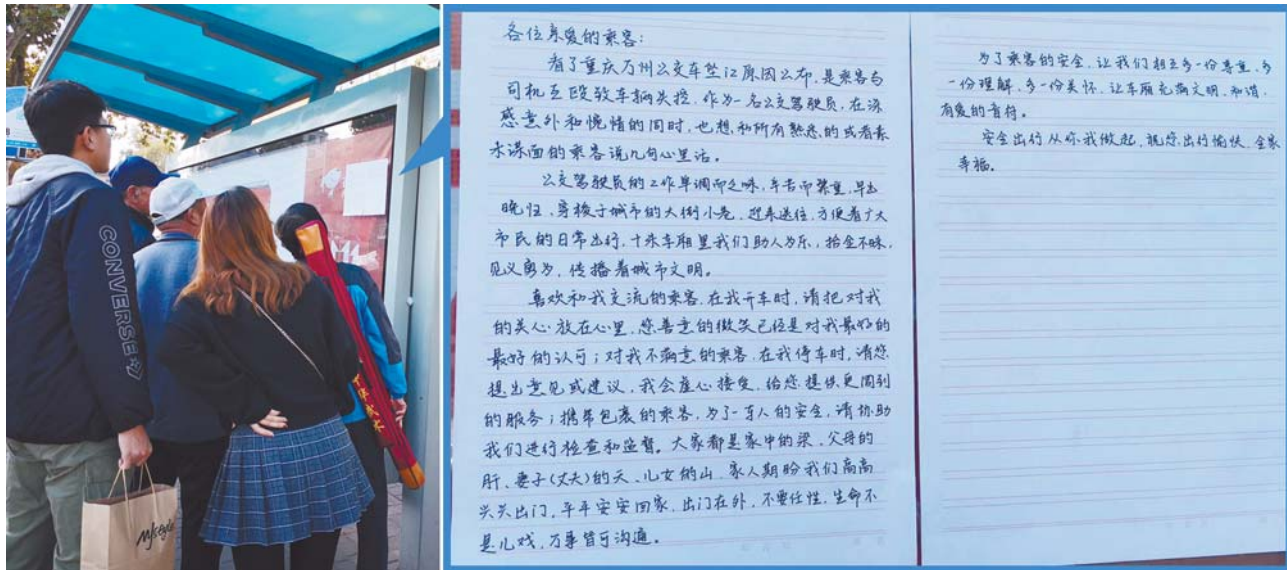 CONVERSE
各位亲爱的乘客：
看了重庆万州公交车坠江原因公布，是乘客与
司机互殴致车辆失控，作为一名公交驾驶员，在深
感意外和惋惜的同时，也想和所有熟悉的或者素
未谋面的乘客说几句心里话。
公交驾驶员的工作单调而乏味，辛苦而繁重，早出
晚归，穿梭于城市的大街小巷，迎来送往，方便着广大
市民的日常出行，十米车厢里我们助人为乐，拾金不昧，
见义勇为，传播着城市文明。
喜欢和我交流的乘客，在我开车时，请把对我
的关心放在心里，您善意的微笑已经是对我最好的
最好的认可；对我不满意的乘客，在我停车时，请您
提出意见或建议，我会虚心接受，给您提供更周到
的服务；携带包裹的乘客，为了一车人的安全，请协助
我们进行检查和监督。大家都是家中的梁，父母的
肝、妻子(丈夫)的天、儿女的山，家人期盼我们高高
兴兴出门，平平安安回家，出门在外，不要任性，生命不
是儿戏，万事皆可沟通。
为了乘客的安全，让我们相互多一份尊重，多
一份理解，多一份关怀，让车厢充满文明、和谐、
有爱的音符。
安全出行从你我做起，祝您出行愉快，全家
幸福。